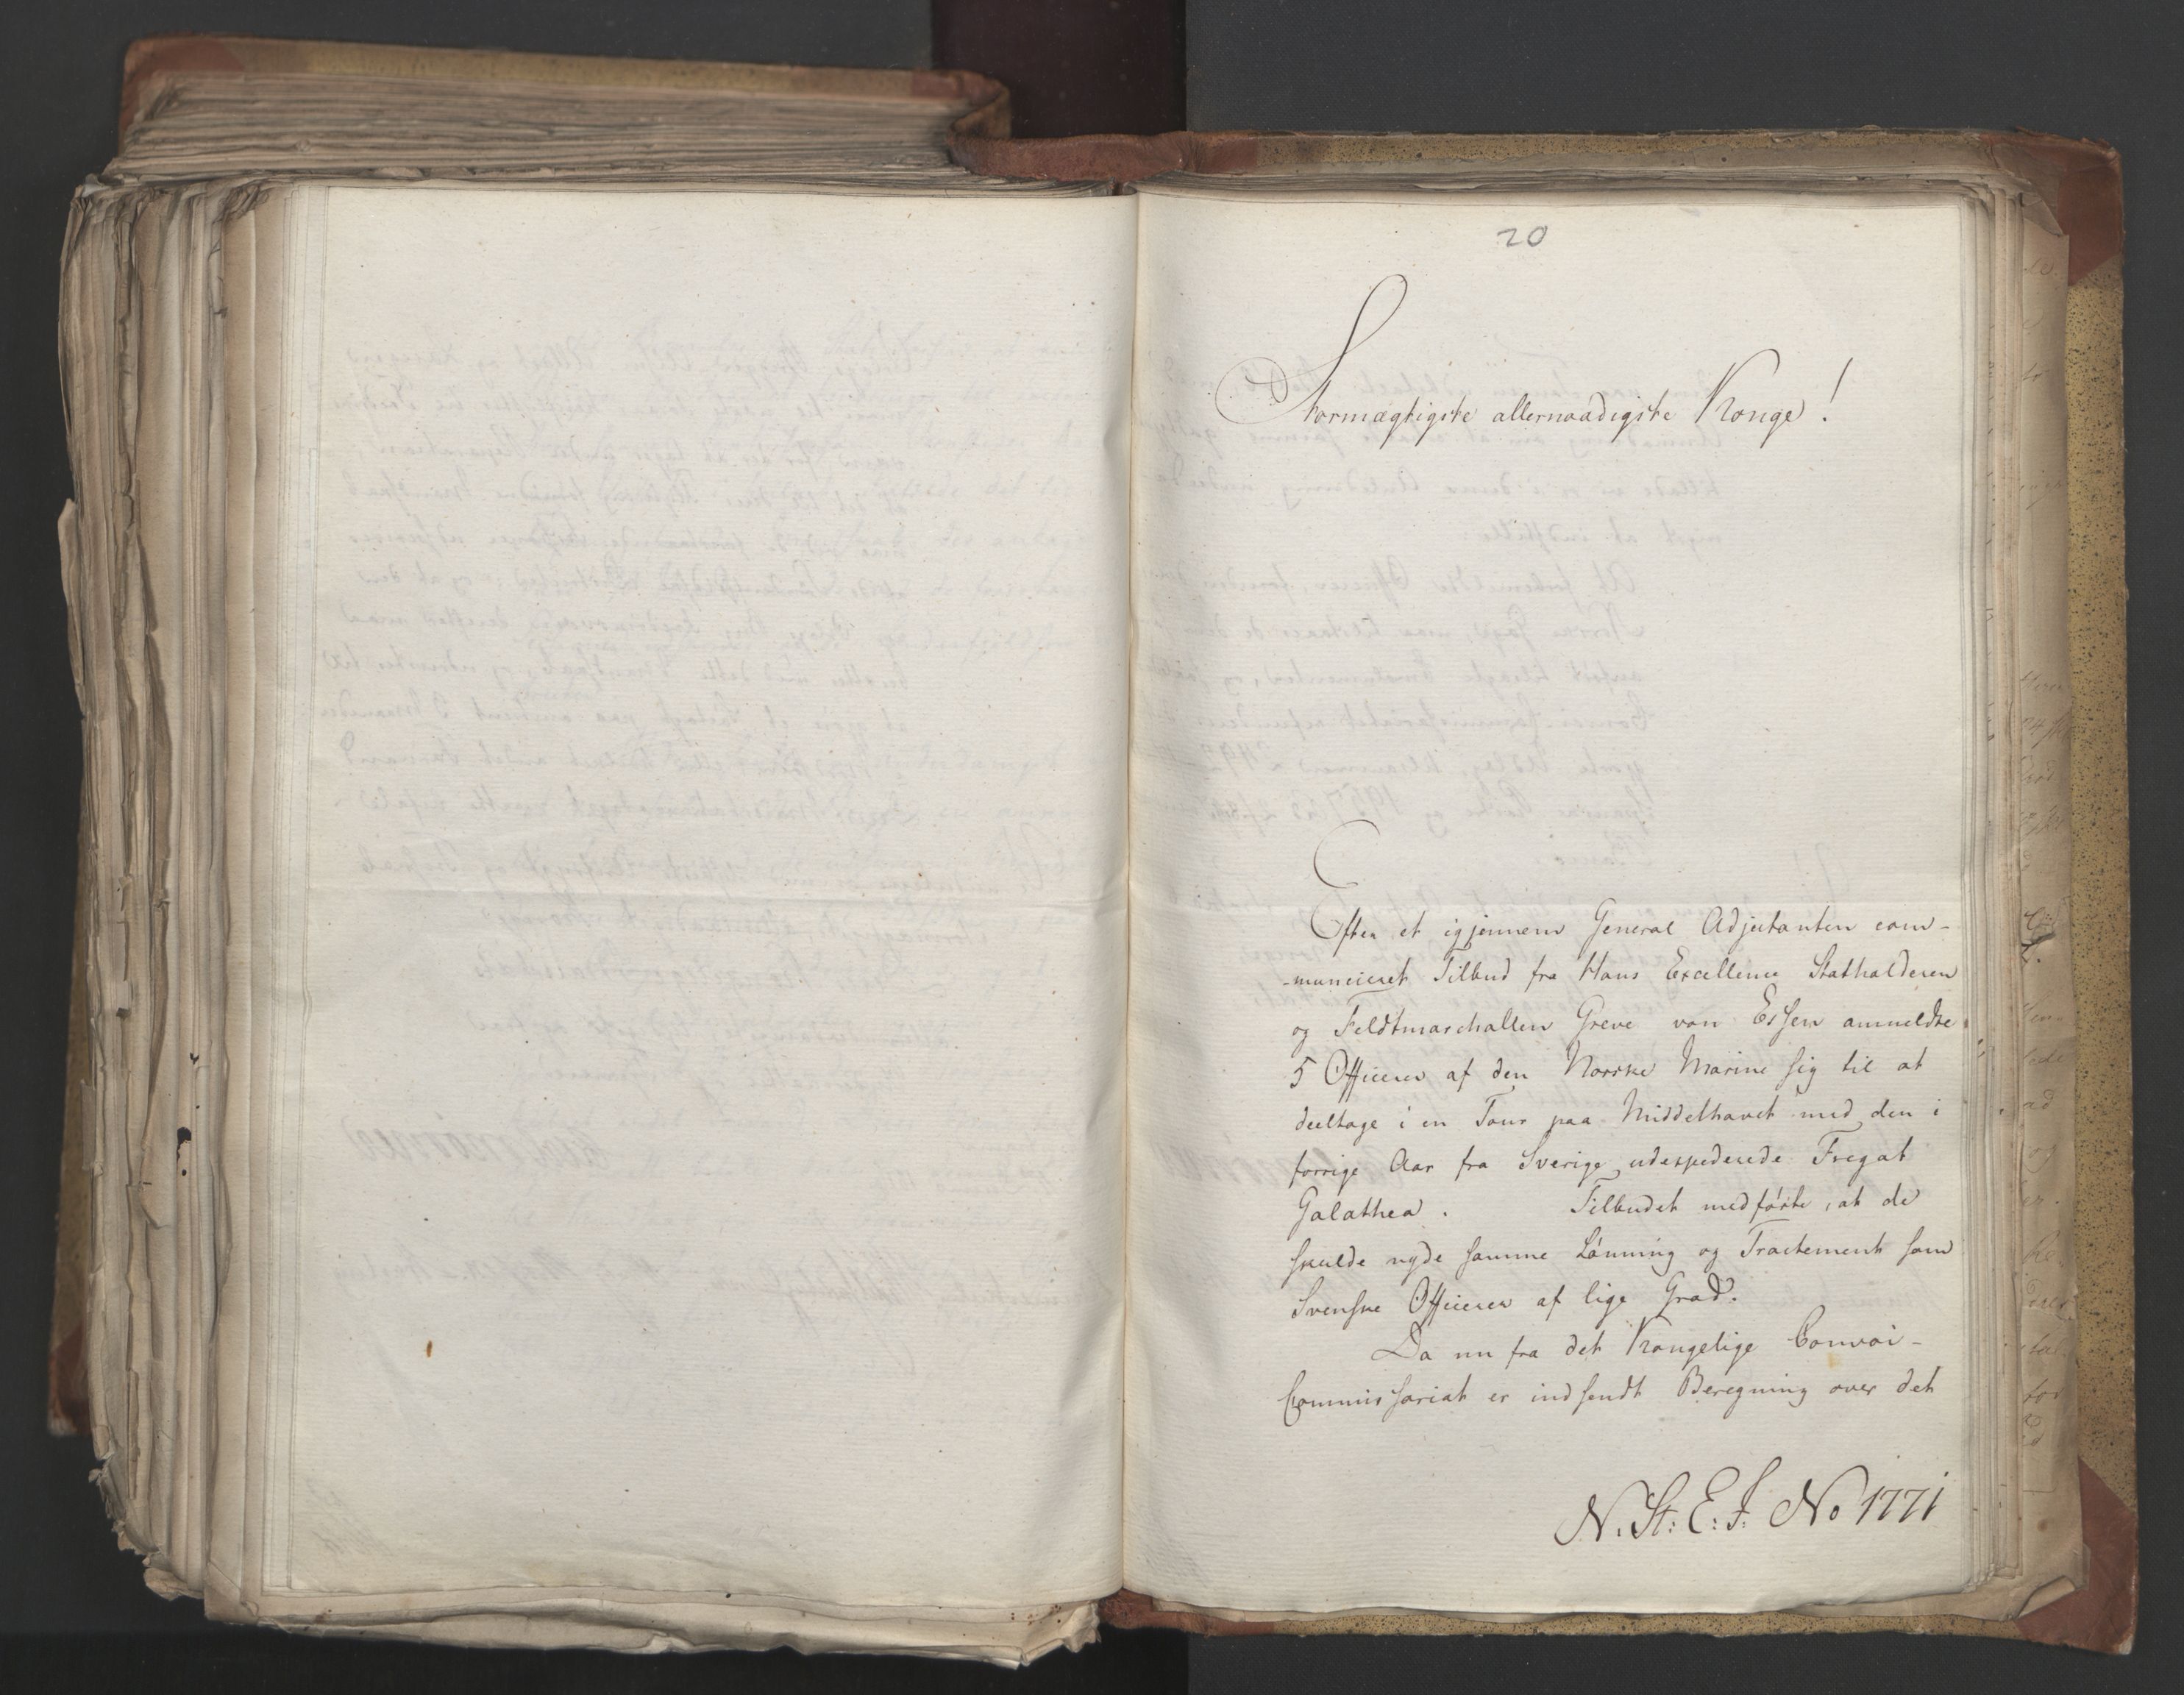 20
Stormægtigste allernaadigste Konge!
Efter et igjennem General Adjutanten com-
-municeret Tilbud fra Hans Excellence Statholderen
og Feldtmarschallen Greve von Essen anmeldte
5 Officerer af den Norske Marine sig til at
deeltage i en Tour paa Middelhavet med den i
forrige Aar fra Sverige udexpederede Fregat
Galathea. Tilbudet medførte, at de
skulde nyde samme Lønning og Tractement som
Svenske Officerer af lige Grad.
Da nu fra det Kongelige Convoi-
Commissariat er indsendt Beregning over det
N. St: E: J. No 1771